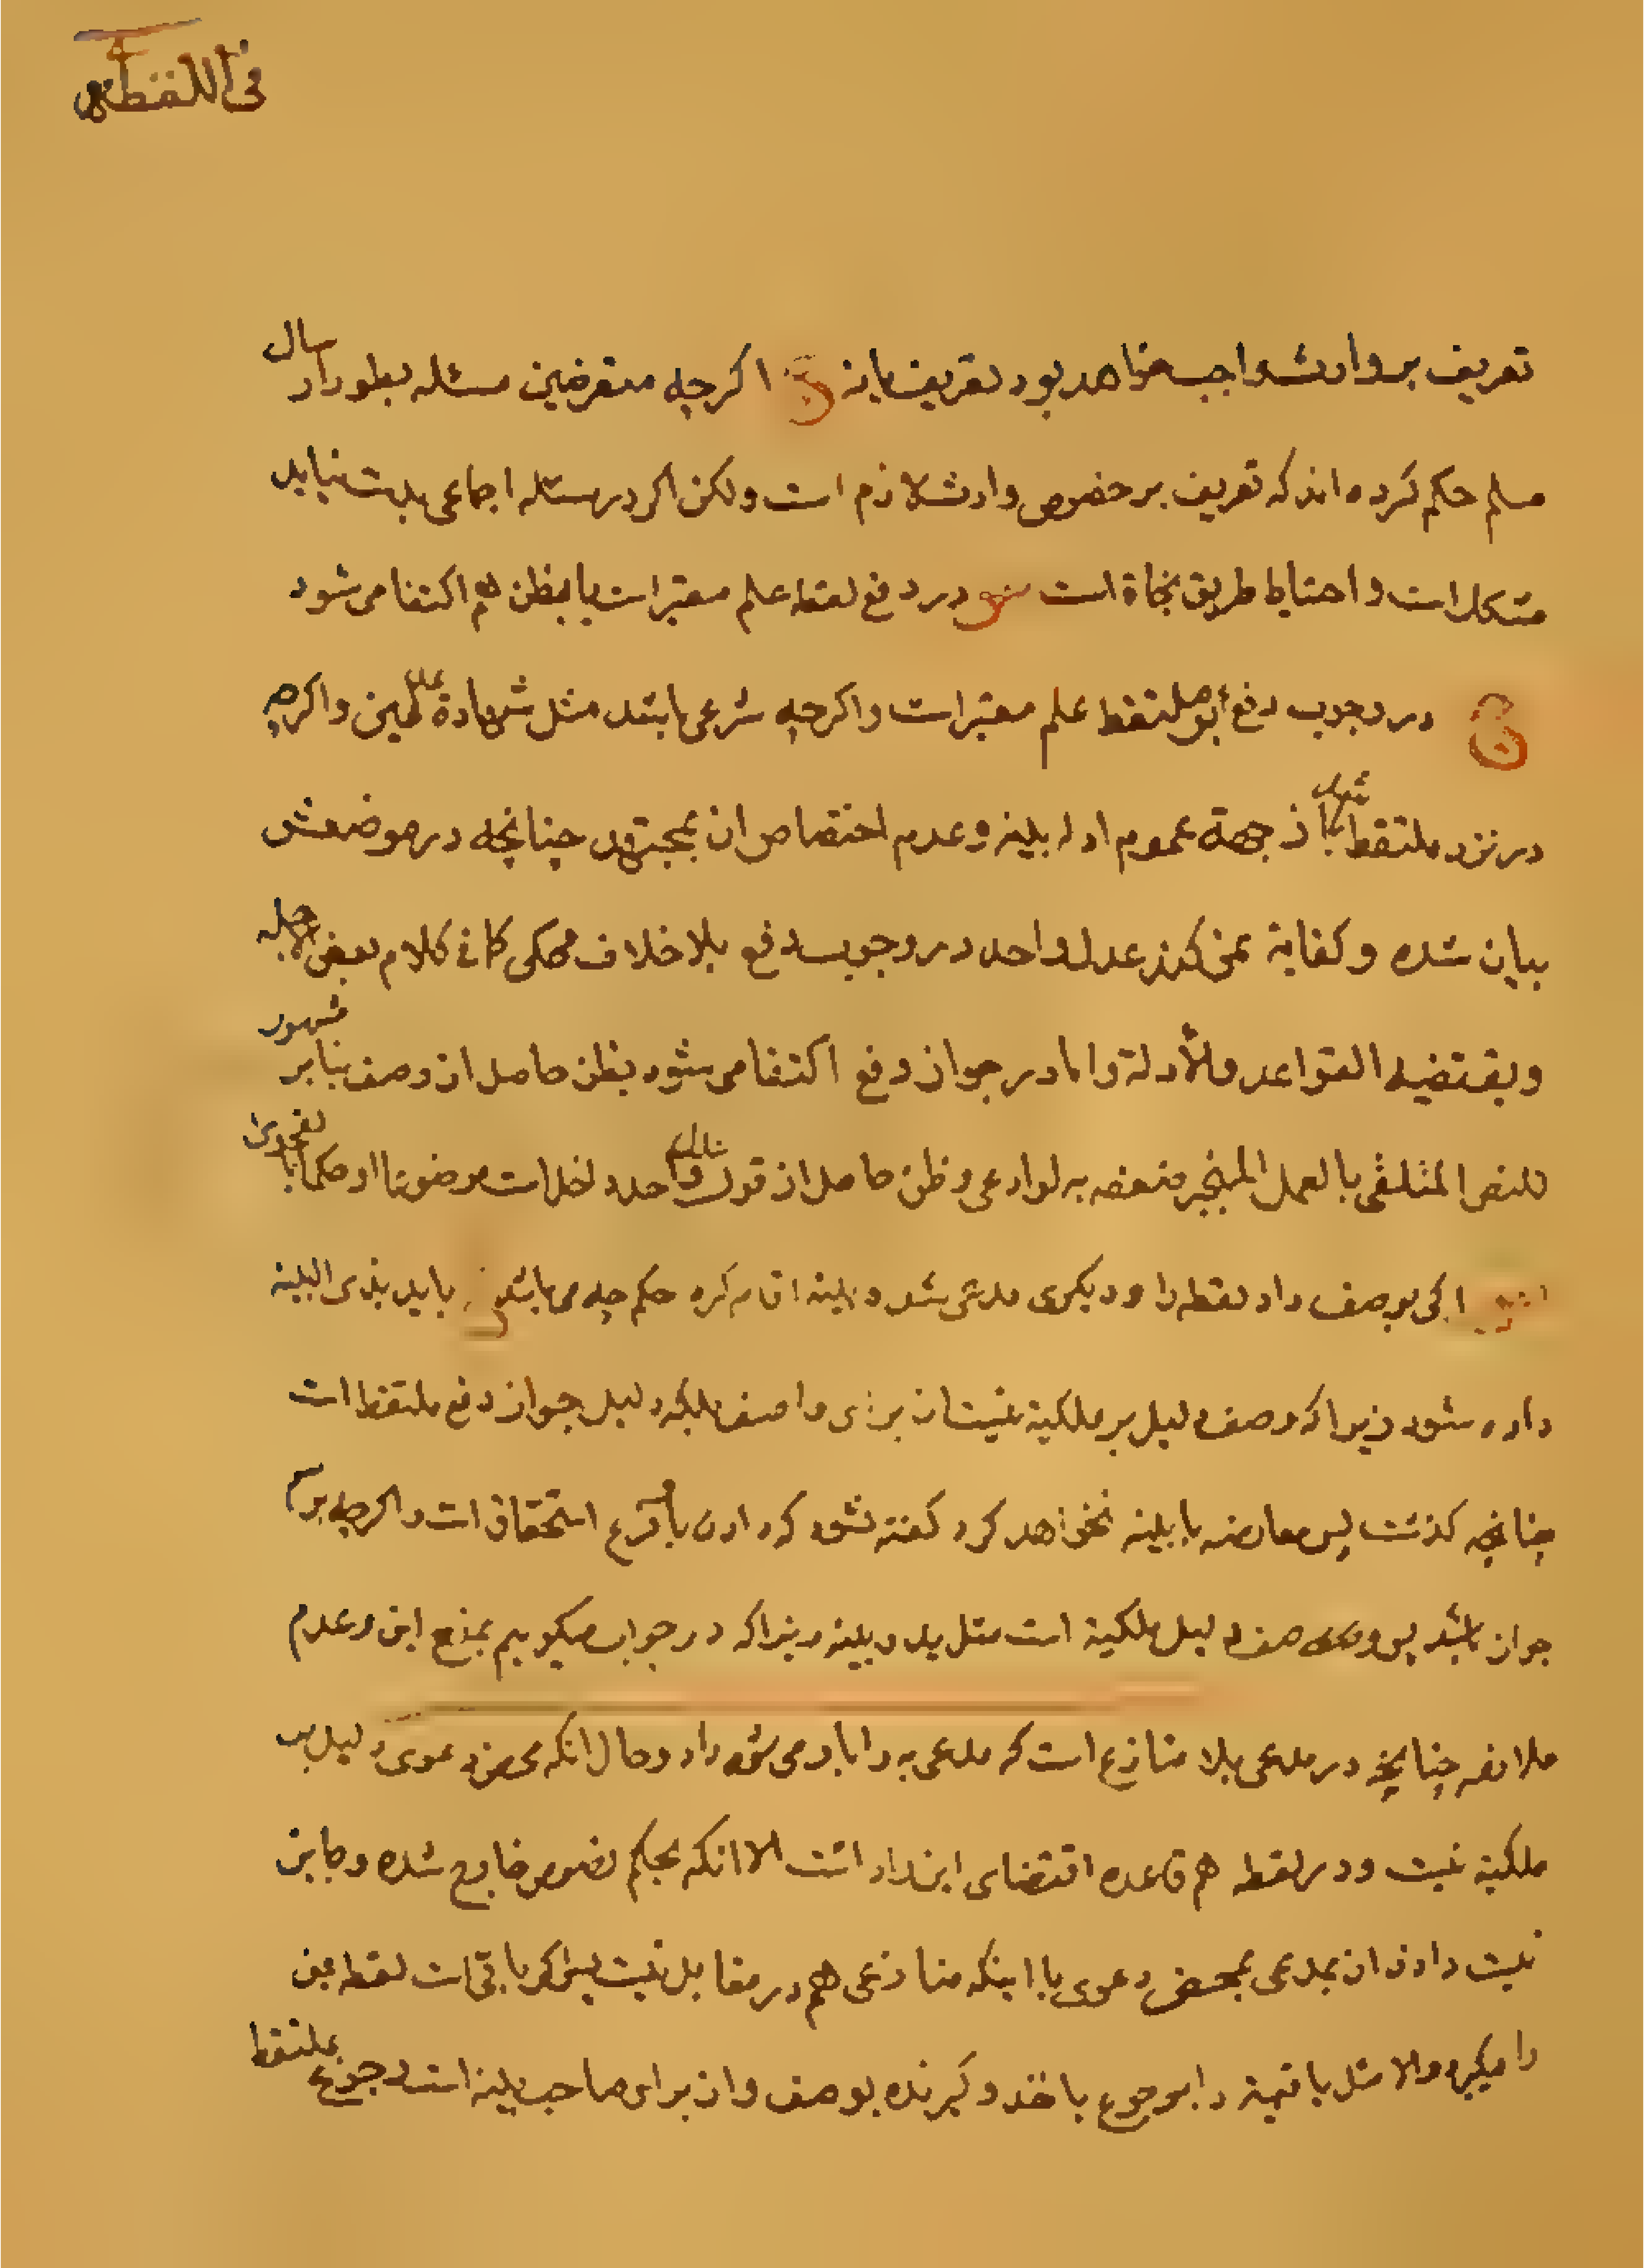 فی اللقطه
تعریف بر وارث واجب خواهد بود تعریف یا نه ج اکرچه متعرضین مسئله بطور ارسال
مسلم حکم کرده اند که تعریف بر خصوص وارث لازم است ولکن اکر در مسئله اجماعی بدست نیاید
مشکل است و احتیاط طریق نجاة است س در دفع لقطه علم معتبر است یا بظن هم اکتفا می شود
ج در وجوب دفع بر ملتقط علم معتبر است واکرچه شرعی باشد مثل شهادة عدلین واکرچه
در نزد ملتقط باشد از جهة عموم ادله بینه و عدم اختصاص ان بمجتهد چنانچه در موضعش
بیان شده و کفایة نمی کند عدل واحد در وجوب دفع بلا خلاف محکی کما فی کلام بعض الاجله
وبقتضیه القواعد والأدلة واما در جواز دفع اکتفا می شود بظن حاصل از وصف بنابر مشهور
للنص المتلقی بالعمل المنجبر ضعفه به لو ادعی وظن حاصل از قول واحد داخل است موضوعا او حکما
اکر کسی بوصف داد لقطه را و دیکری مدعی شد و بینه اقامه کرد حکم چه می باشد ج باید بذی البینه
داده شود زیرا که وصف دلیل بر ملکیة نیست از برای واصف بلکه دلیل جواز دفع ملتقط است
چنانچه کذشت پس معارضه با بینه نخواهد کرد کفته نشود که دادن فرع استحقاق است واکرچه بر
جواز باشد پس وصف دلیل ملکیة است مثل ید و بینه زیرا که در جواب میکوییم بمنع این وعدم
ملازمه چنانچه در مدعی بلا منازع است که مدعی به را باو می شود داد و حال انکه محض دعوی دلیل بر
ملکیة نیست ودر لقطه هم قاعده اقتضای این را داشت الا انکه بحکم نصوص خارج شده وجایز
نیست دادن ان بمدعی بمحض دعوی با اینکه منازعی هم در مقابل نیست پس اکر باقی است لقطه عین
را میکیرد والا مثل یا قیمة را برجوع باخذ و کیرنده بوصف واز برای صاحب بینه است رجوع بملتقط